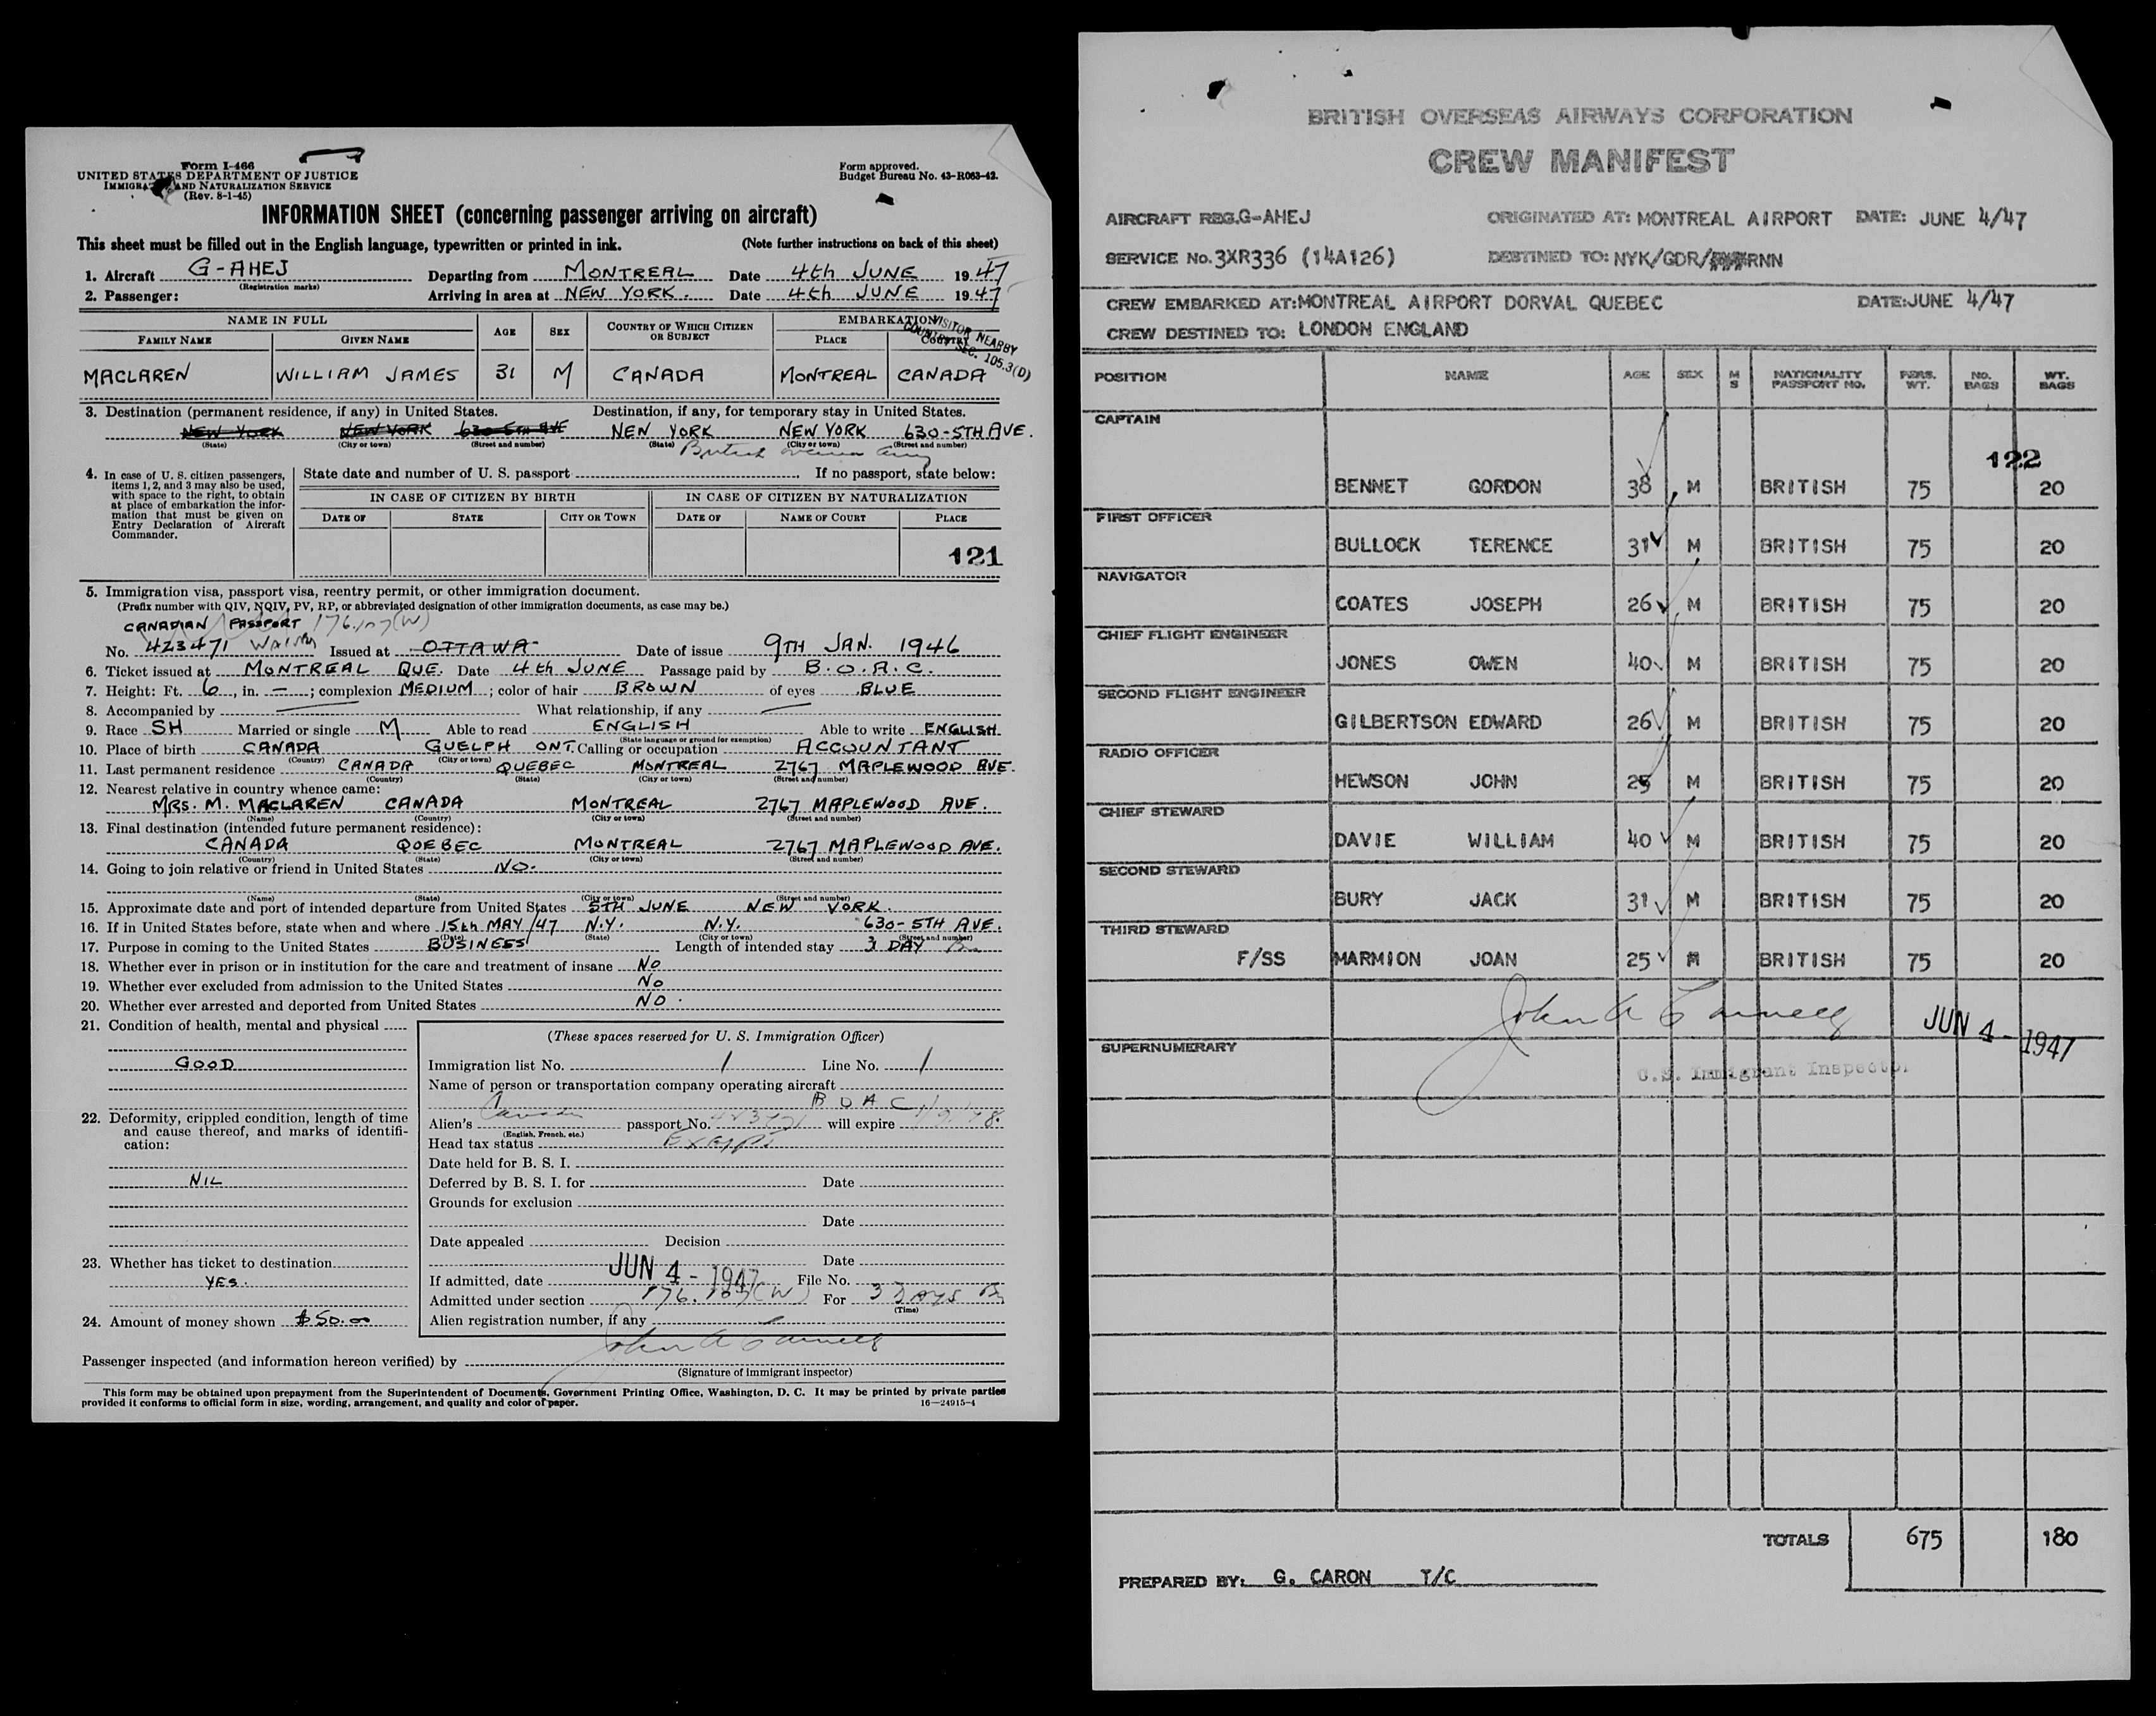 Form I-466
UNITED STATES DEPARTMENT OF JUSTICE
IMMIGRATION AND NATURALIZATION SERVICE
(Rev. 8-1-45)
Form approved.
Budget Bureau No. 43-R063-42.
INFORMATION SHEET (concerning passenger arriving on aircraft)
This sheet must be filled out in the English language, typewritten or printed in ink. (Note further instructions on back of this sheet)
1. Aircraft G-AHEJ Departing from MONTREAL Date 4th JUNE 1947
(Registration marks)
2. Passenger: Arriving in area at NEW YORK. Date 4th JUNE 1947
NAME IN FULL AGE SEX COUNTRY OF WHICH CITIZEN OR SUBJECT EMBARKATION
FAMILY NAME GIVEN NAME PLACE COUNTRY
VISITOR NEARBY
COUNTRY SEC. 105.3(D)
MACLAREN WILLIAM JAMES 31 M CANADA MONTREAL CANADA
3. Destination (permanent residence, if any) in United States. Destination, if any, for temporary stay in United States.
NEW YORK NEW YORK 630-5TH AVE NEW YORK NEW YORK 630-5TH AVE.
(State) (City or town) (Street and number) (State) (City or town) (Street and number)
British
4. In case of U. S. citizen passengers, items 1, 2, and 3 may also be used, with space to the right, to obtain at place of embarkation the information that must be given on Entry Declaration of Aircraft Commander.
State date and number of U. S. passport If no passport, state below:
IN CASE OF CITIZEN BY BIRTH IN CASE OF CITIZEN BY NATURALIZATION
DATE OF STATE CITY OR TOWN DATE OF NAME OF COURT PLACE
121
5. Immigration visa, passport visa, reentry permit, or other immigration document.
(Prefix number with QIV, NQIV, PV, RP, or abbreviated designation of other immigration documents, as case may be.)
CANADIAN PASSPORT 176.107(W)
No. 423471 Issued at OTTAWA Date of issue 9TH JAN. 1946
6. Ticket issued at MONTREAL QUE. Date 4th JUNE Passage paid by B.O.A.C.
7. Height: Ft. 6, in. –; complexion MEDIUM; color of hair BROWN of eyes BLUE
8. Accompanied by What relationship, if any
9. Race SH Married or single M Able to read ENGLISH Able to write ENGLISH
(State language or ground for exemption)
10. Place of birth CANADA GUELPH ONT. Calling or occupation ACCOUNTANT
(Country) (City or town)
11. Last permanent residence CANADA QUEBEC MONTREAL 2767 MAPLEWOOD AVE.
(Country) (State) (City or town) (Street and number)
12. Nearest relative in country whence came:
MRS. M. MACLAREN CANADA MONTREAL 2767 MAPLEWOOD AVE.
(Name) (Country) (City or town) (Street and number)
13. Final destination (intended future permanent residence):
CANADA QUEBEC MONTREAL 2767 MAPLEWOOD AVE.
(Country) (State) (City or town) (Street and number)
14. Going to join relative or friend in United States NO.
(Name) (State) (City or town) (Street and number)
15. Approximate date and port of intended departure from United States 5TH JUNE NEW YORK.
16. If in United States before, state when and where 15th MAY/47 N.Y. N.Y. 630-5TH AVE.
(Date) (State) (City or town) (Street and number)
17. Purpose in coming to the United States BUSINESS Length of intended stay 3 DAY
18. Whether ever in prison or in institution for the care and treatment of insane NO
19. Whether ever excluded from admission to the United States NO
20. Whether ever arrested and deported from United States NO.
21. Condition of health, mental and physical
GOOD
22. Deformity, crippled condition, length of time and cause thereof, and marks of identification:
NIL
23. Whether has ticket to destination
YES.
24. Amount of money shown $50.00
(These spaces reserved for U. S. Immigration Officer)
Immigration list No. 1 Line No. 1
Name of person or transportation company operating aircraft
BOAC
Alien's Canadian passport No. 423471 will expire
(English, French, etc.)
Head tax status Exempt
Date held for B. S. I.
Deferred by B. S. I. for Date
Grounds for exclusion
Date
Date appealed Decision
Date
If admitted, date JUN 4 - 1947 File No.
Admitted under section 176.107(W) For 3 Days
(Time)
Alien registration number, if any
Passenger inspected (and information hereon verified) by John A
(Signature of immigrant inspector)
This form may be obtained upon prepayment from the Superintendent of Documents, Government Printing Office, Washington, D. C. It may be printed by private parties
provided it conforms to official form in size, wording, arrangement, and quality and color of paper. 16—24915-4
BRITISH OVERSEAS AIRWAYS CORPORATION
CREW MANIFEST
AIRCRAFT REG. G-AHEJ ORIGINATED AT: MONTREAL AIRPORT DATE: JUNE 4/47
SERVICE No. 3XR336 (14A126) DESTINED TO: NYK/GDR/RNN
CREW EMBARKED AT: MONTREAL AIRPORT DORVAL QUEBEC DATE: JUNE 4/47
CREW DESTINED TO: LONDON ENGLAND
POSITION NAME AGE SEX M S NATIONALITY PASSPORT NO. PERS. WT. NO. BAGS WT. BAGS
CAPTAIN
122
BENNET GORDON 38 M BRITISH 75 20
FIRST OFFICER
BULLOCK TERENCE 31 M BRITISH 75 20
NAVIGATOR
COATES JOSEPH 26 M BRITISH 75 20
CHIEF FLIGHT ENGINEER
JONES OWEN 40 M BRITISH 75 20
SECOND FLIGHT ENGINEER
GILBERTSON EDWARD 26 M BRITISH 75 20
RADIO OFFICER
HEWSON JOHN 25 M BRITISH 75 20
CHIEF STEWARD
DAVIE WILLIAM 40 M BRITISH 75 20
SECOND STEWARD
BURY JACK 31 M BRITISH 75 20
THIRD STEWARD
F/SS MARMION JOAN 25 BRITISH 75 20
John A
JUN 4 - 1947
SUPERNUMERARY
U.S. Immigrant Inspector
TOTALS 675 180
PREPARED BY: G. CARON T/C